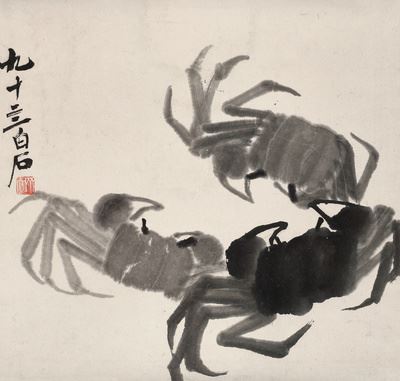 九十三白石